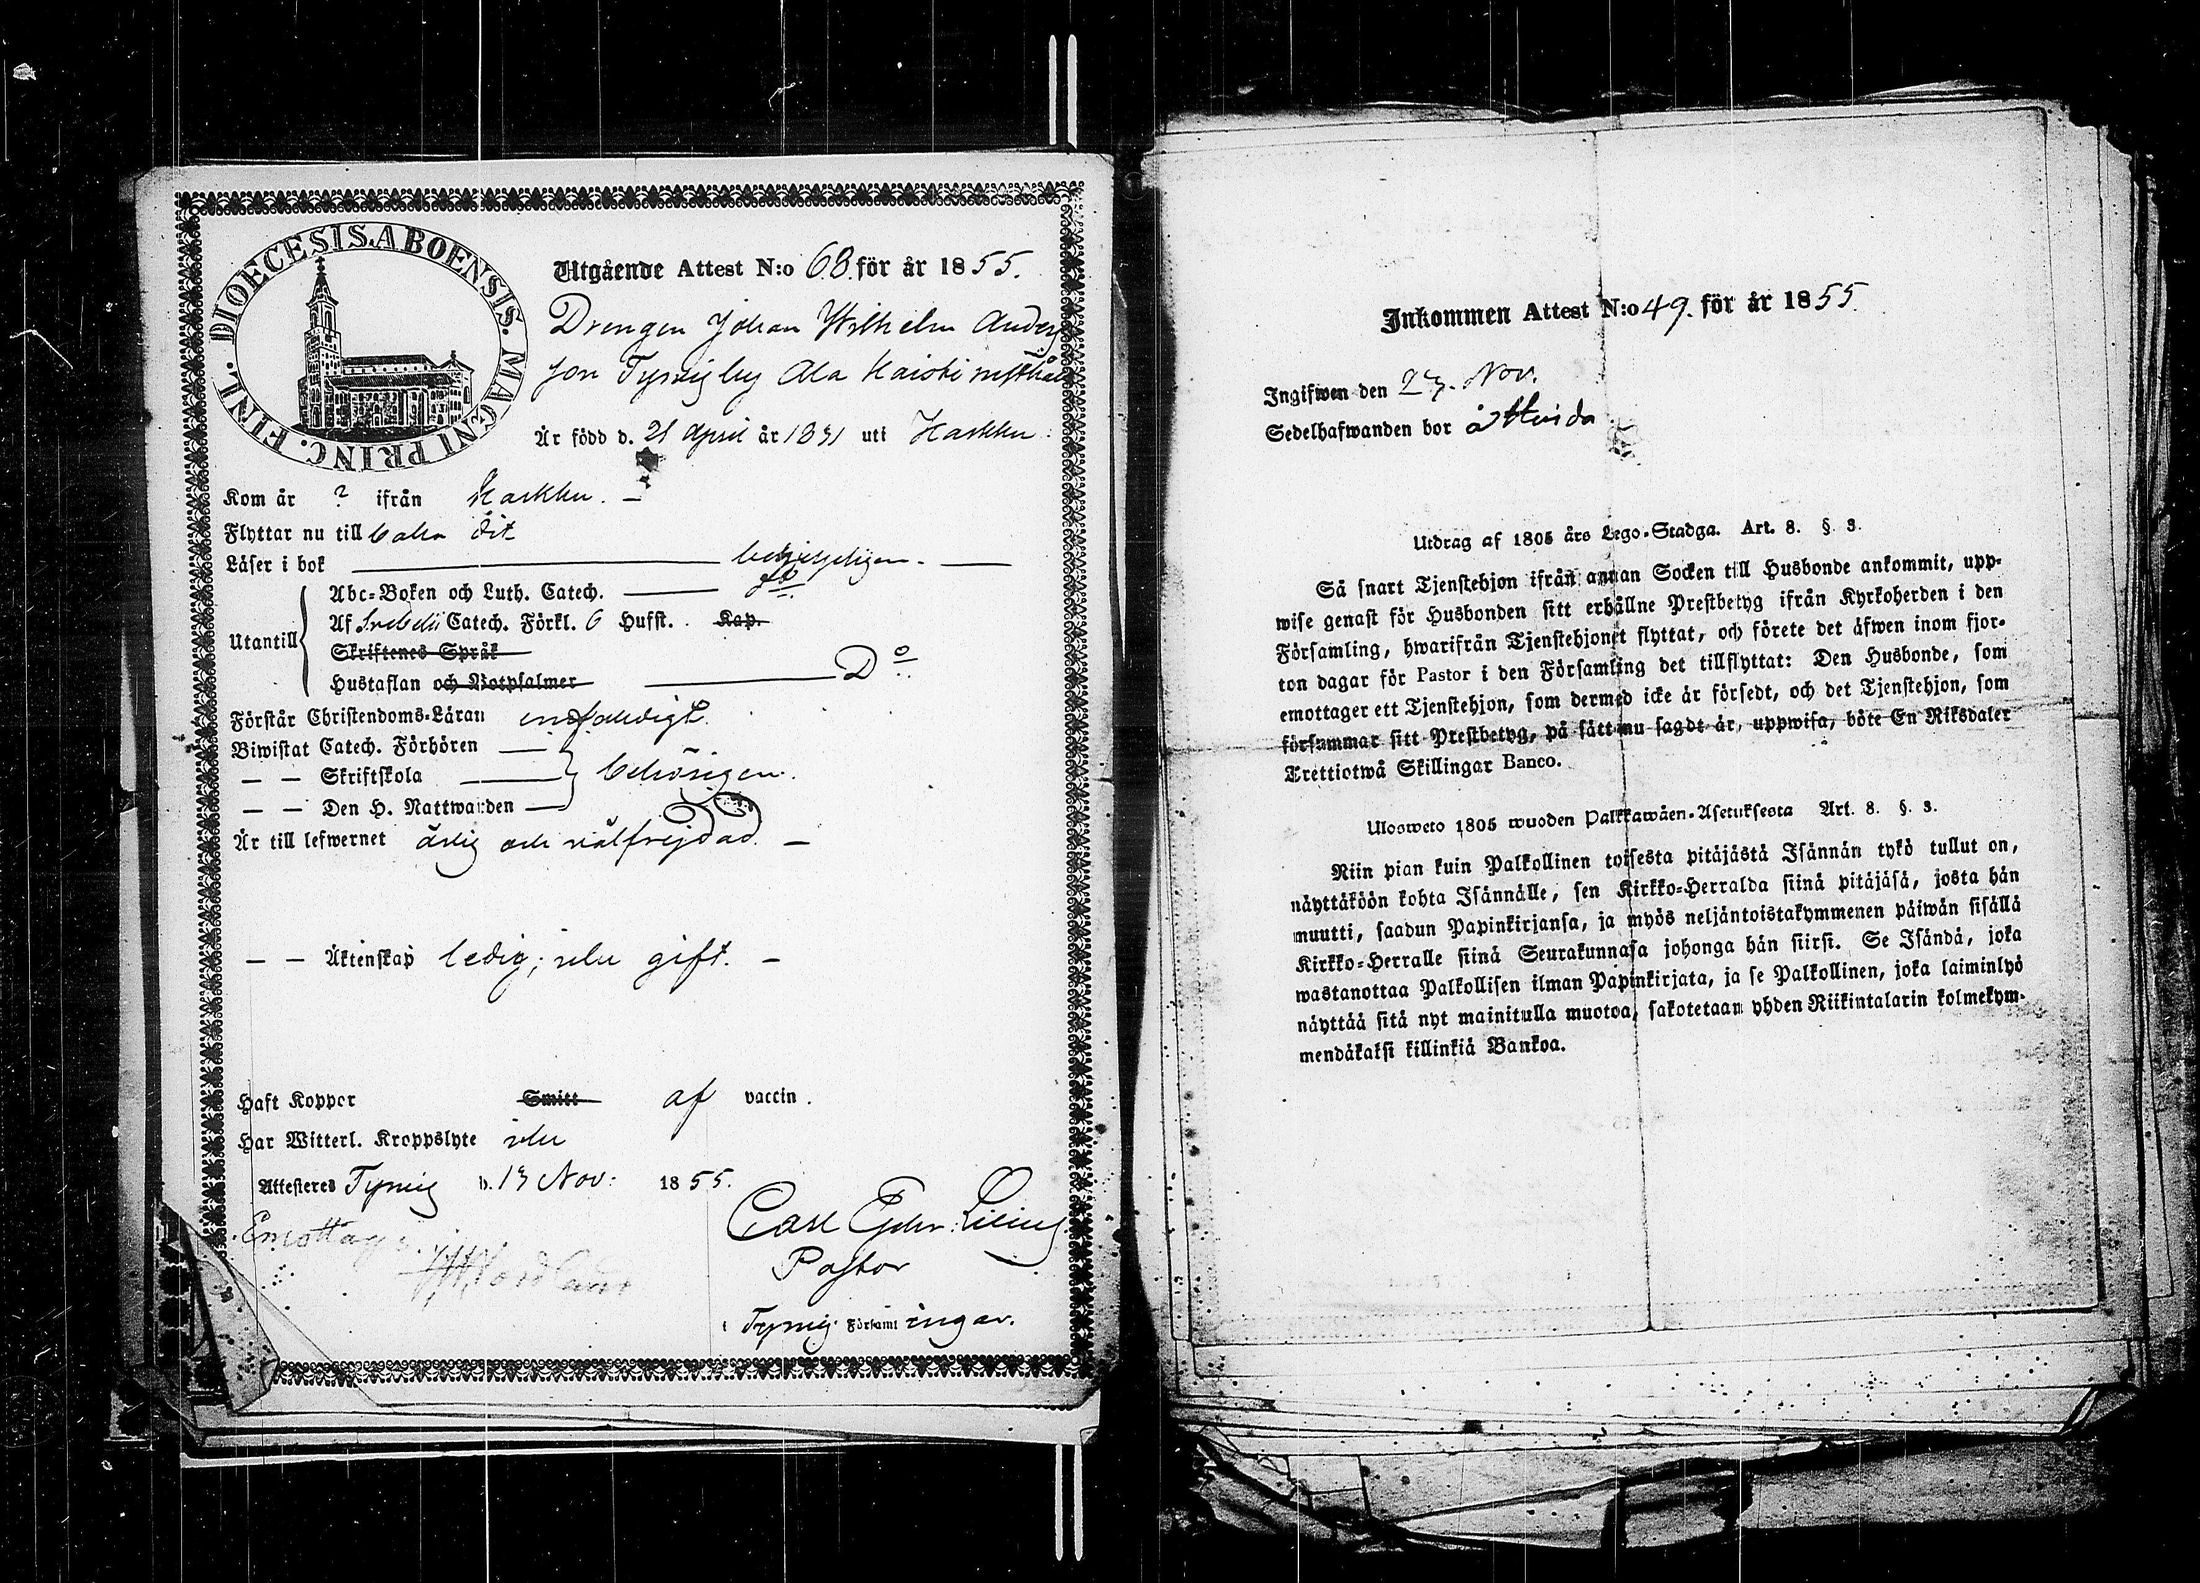 DIOECESIS. ABOENSIS. MAGNI PRINC. FINL.
Utgående Attest N:o 68 för år 1855.
Drengen Johan Wilhelm Anders
son
Är född d. 21 April år 1831 uti Karkku.
Kom år ? ifrån Karkku. —
Flyttar nu till baka dit
Läser i bok
Abc-Boken och Luth. Catech. do
Utantill
Af Svebelii Catech. Förkl. 6 Hufst. Kap.
Skriftenes Språk
Hustaflan och Botpsalmer Do
Förstår Christendoms-Läran enfaldigt.
Biwistat Catech. Förhören
— — Skriftskola behörigen.
— — Den H. Nattwarden
Är till lefwernet ärlig och välfrejdad. —
— — Äktenskap ledig; icke gift. —
Haft Koppor Smitt af vaccin.
Har Witterl. Kroppslyte icke
Attesteres d. 13 Nov: 1855.
Carl
Pastor
Församlingar.
Inkommen Attest N:o 49. för år 1855.
Ingifwen den 23. Nov.
Sedelhafwanden bor å
Utdrag af 1805 års Lego-Stadga. Art. 8. § 3.
Så snart Tjenstehjon ifrån annan Socken till Husbonde ankommit, upp-
wise genast för Husbonden sitt erhållne Prestbetyg ifrån Kyrkoherden i den
Församling, hwarifrån Tjenstehjonet flyttat, och förete det äfwen inom fjor-
ton dagar för Pastor i den Församling det tillflyttat: Den Husbonde, som
emottager ett Tjenstehjon, som dermed icke är försedt, och det Tjenstehjon, som
försummar sitt Prestbetyg, på sätt nu sagdt är, uppwisa, böte En Riksdaler
Trettiotwå Skillingar Banco.
Ulosweto 1805 wuoden Palkkawäen-Asetuksesta Art. 8. §. 3.
Niin pian kuin Palkollinen toisesta pitäjästä Isännän tykö tullut on,
näyttäköön kohta Isännälle, sen Kirkko-Herralda siinä pitäjäsä, josta hän
muutti, saadun Papinkirjansa, ja myös neljäntoistakymmenen päiwän sisällä
Kirkko-Herralle siinä Seurakunnasa johonga hän siirsi. Se Isändä, joka
wastanottaa Palkollisen ilman Papinkirjata, ja se Palkollinen, joka laiminlyö
näyttää sitä nyt mainitulla muotoa, sakotetaan yhden Riikintalarin kolmekym-
mendäkaksi killinkiä Bankoa.